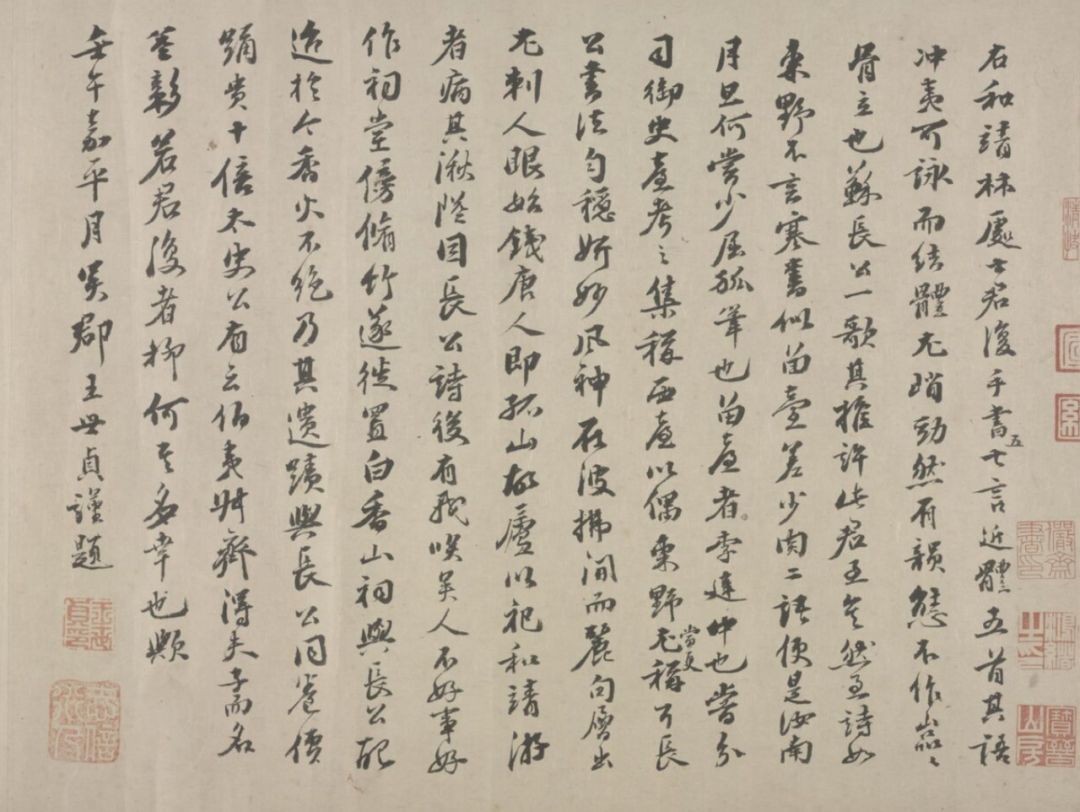 右和靖林處士君復手書五七言近體五首其語
冲夷可詠而結體尤峭勁然有韻態不作嵓〻
骨立也蘇長公一歌其推許此君至矣然至詩如
東野不言寒書似留臺差少肉二語便是汝南
月旦何嘗少屈狐筆也留臺者李建中也嘗分
司御史臺考之集稱西臺以偶東野當更尤稱耳長
公書法勻穩妍妙風神在波拂間而麗句層出
尤刺人眼始錢唐人即孤山故廬以祀和靖游
者病其湫隘因長公詩後有我咲吳人不好事好
作祠堂傍脩竹遂徙置白香山祠與長公配
迨於今香火不絕乃其遺蹟與長公同卷價
踊貴十倍太史公有云伯夷叔齊得夫子而名
益彰若君復者抑何其多幸也歟
壬午嘉平月吳郡王世貞謹題